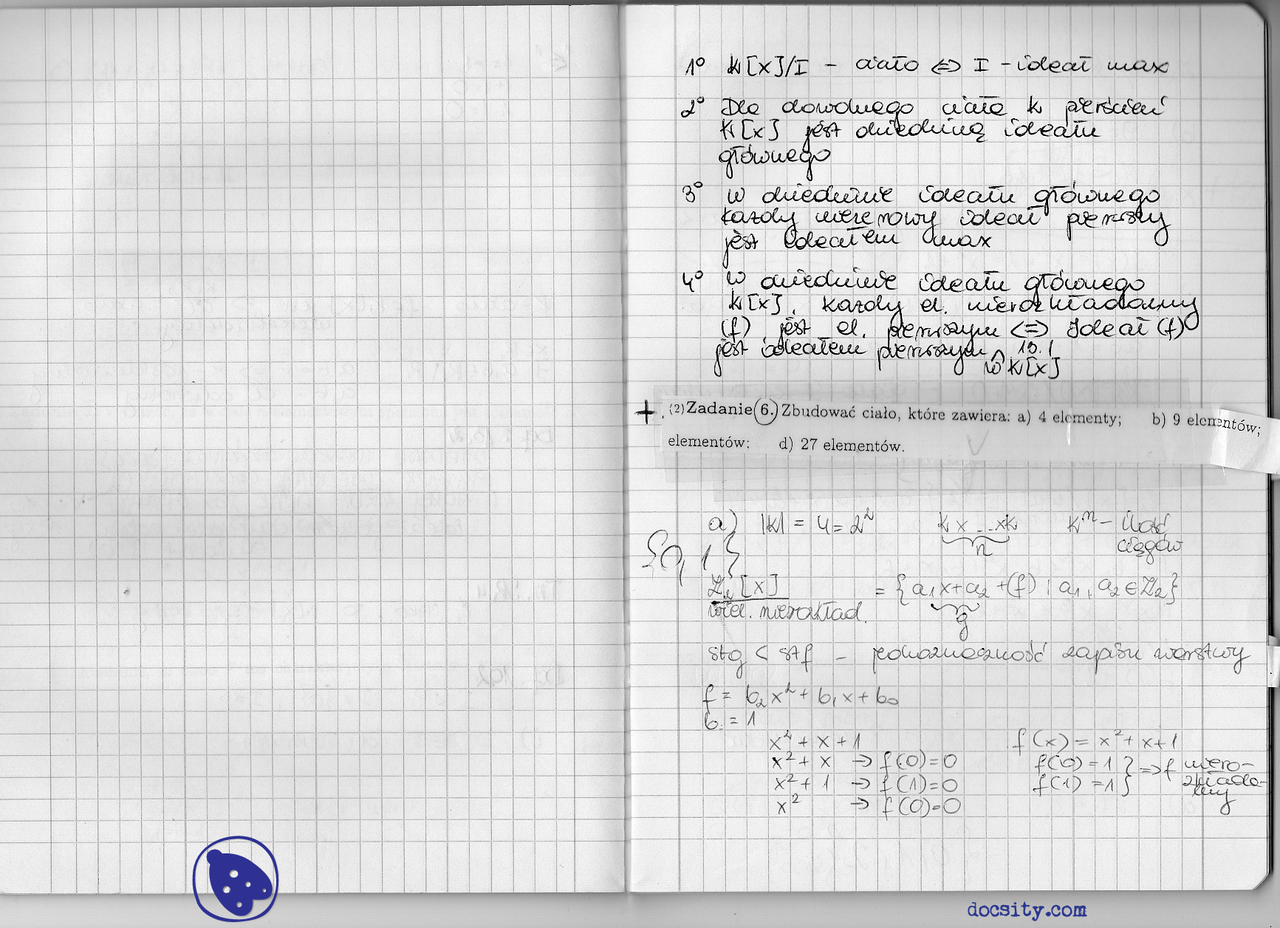 1° K[x]/I - ciało ⇔ I - ideał max
2° Dla dowolnego ciała K pierścień
K[x] jest dziedziną ideału
głównego
3° W dziedzinie ideału głównego
każdy niezerowy ideał pierwszy
jest ideałem max
4° W dziedzinie ideału głównego
K[x], każdy el. nierozkładalny
(f) jest el. pierwszym ⇔ Ideał (f)
jest ideałem pierwszym
w K[x]
+ (2) Zadanie 6. Zbudować ciało, które zawiera: a) 4 elementy; b) 9 elementów;
elementów; d) 27 elementów.
a) |K| = 4 = 2² K x ... x K Kⁿ - ilość
n ciągów
{0, 1}
ℤ₂[x] = {a₁x + a₂ + (f) | a₁, a₂ ∈ ℤ₂}
wiel. nierozkład. g
st g < st f - jednoznaczność zapisu warstwy
f = b₂x² + b₁x + b₀
b = 1
x² + x + 1 f(x) = x² + x + 1
x² + x → f(0) = 0 f(0) = 1 } ⇒ f niero-
x² + 1 → f(1) = 0 f(1) = 1 } zkłada-
x² → f(0) = 0 lny
docsity.com